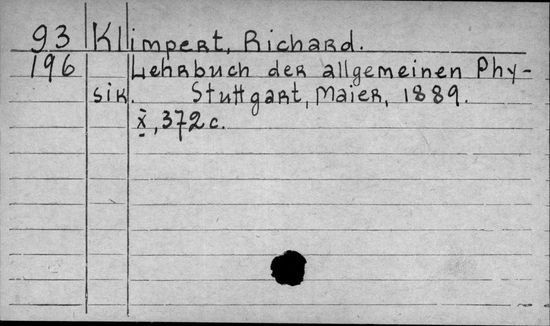 93 Klimpert, Richard.
196 Lehrbuch der allgemeinen Phy-
sik. Stuttgart, Maier, 1889.
X, 372 c.